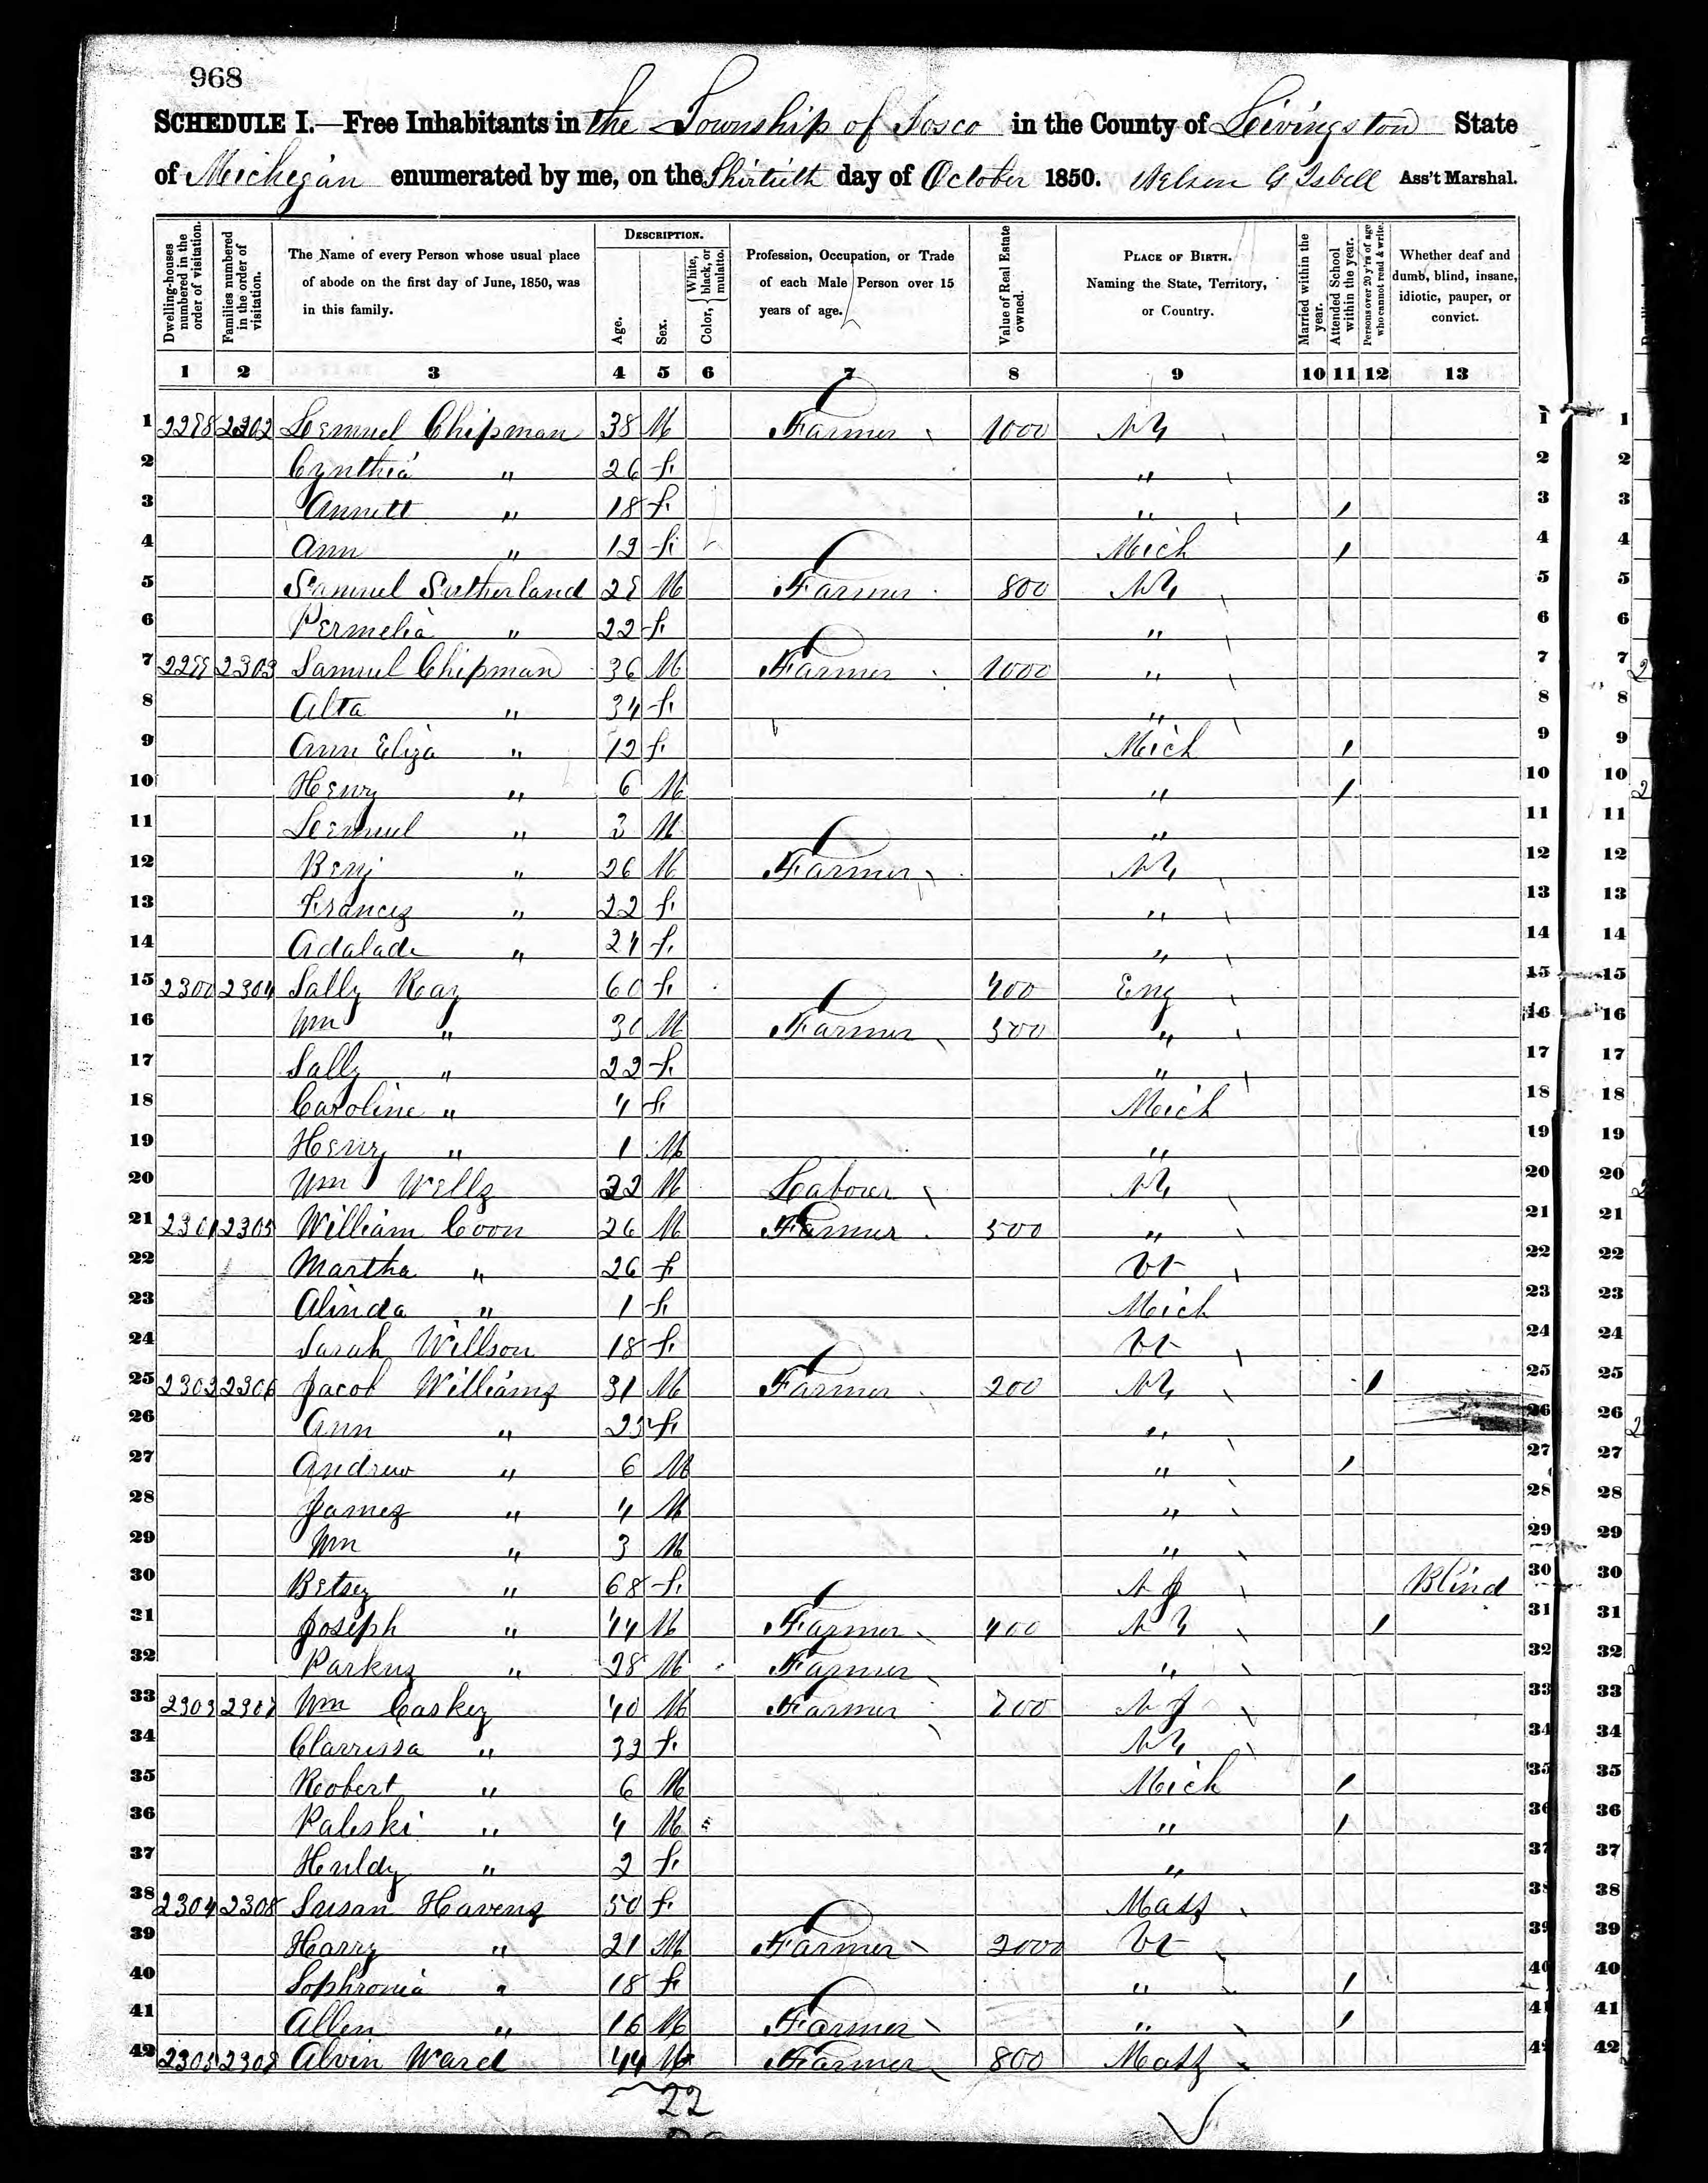 968
SCHEDULE I.—Free Inhabitants in the Township of Iosco in the County of Livingston State
of Michigan enumerated by me, on the Thirtieth day of October 1850. Nelson G Isbell Ass't Marshal.
Dwelling-houses numbered in the order of visitation. Families numbered in the order of visitation. The Name of every Person whose usual place of abode on the first day of June, 1850, was in this family. DESCRIPTION. Age. Sex. Color, White, black, or mulatto. Profession, Occupation, or Trade of each Male Person over 15 years of age. Value of Real Estate owned. PLACE OF BIRTH. Naming the State, Territory, or Country. Married within the year. Attended School within the year. Persons over 20 y'rs of age who cannot read & write. Whether deaf and dumb, blind, insane, idiotic, pauper, or convict.
1 2 3 4 5 6 7 8 9 10 11 12 13
1 2298 2302 Lemuel Chipman 38 M Farmer 1000 NY 1
2 Cynthia " 26 f " 2
3 Annett " 18 f " / 3
4 Ann " 12 f Mich / 4
5 Samuel Sutherland 28 M Farmer 800 NY 5
6 Permelia " 22 f " 6
7 2299 2303 Samuel Chipman 36 M Farmer 1000 " 7
8 Alta " 34 f " 8
9 Ann Eliza " 12 f Mich / 9
10 Henry " 6 M " / 10
11 Lemuel " 3 M " 11
12 Benj " 26 M Farmer NY 12
13 Frances " 22 f " 13
14 Adalade " 24 f " 14
15 2300 2304 Sally Ray 60 f 400 Eng 15
16 Wm " 30 M Farmer 500 " 16
17 Sally " 22 f " 17
18 Caroline " 4 f Mich 18
19 Henry " 1 M " 19
20 Wm Wells 22 M Laborer NY 20
21 2301 2305 William Coon 26 M Farmer 500 " 21
22 Martha " 26 f Vt 22
23 Alinda " 1 f Mich 23
24 Sarah Willson 18 f Vt 24
25 2302 2306 Jacob Williams 31 M Farmer 200 NY / 25
26 Ann " 25 f " 26
27 Andrew " 6 M " / 27
28 James " 4 M " 28
29 Wm " 3 M " 29
30 Betsey " 68 f N J Blind 30
31 Joseph " 44 M Farmer 400 N Y / 31
32 Parkus " 28 M Farmer " 32
33 2303 2307 Wm Caskey 40 M Farmer 700 N J 33
34 Clarrissa " 32 f NY 34
35 Robert " 6 M Mich / 35
36 Paleski " 4 M " / 36
37 Huldy " 2 f " 37
38 2304 2308 Susan Havens 50 f Mass 38
39 Harry " 21 M Farmer 2000 Vt 39
40 Sophronia " 18 f " / 40
41 Allen " 16 M Farmer " / 41
42 2305 2309 Alvin Ward 44 M Farmer 800 Mass 42
22